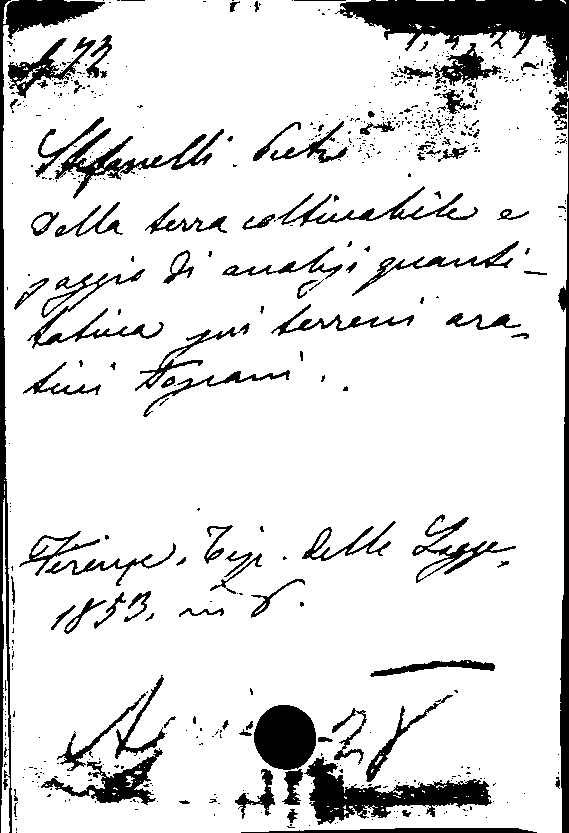 Stefanelli Pietro
Della terra coltivabile e
saggio di analisi quanti-
tativa sui terreni ara-
tivi Toscani.
Firenze, Tip. delle Logge,
1853, in 8.